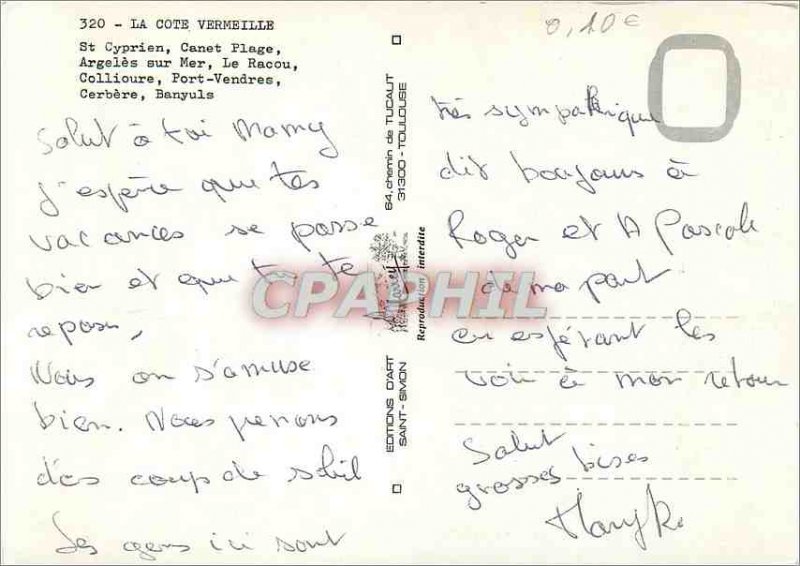 320 - LA COTE VERMEILLE
St Cyprien, Canet Plage,
Argelès sur Mer, Le Racou,
Collioure, Port-Vendres,
Cerbère, Banyuls
Salut à toi Mamy
j'espère que tes
vacances se passe
bien et que tu te
repose,
Nous on s'amuse
bien. Nous prenons
des coup de soleil
Les gens ici sont
EDITIONS D'ART
SAINT-SIMON
64, chemin de TUCAUT
31300 - TOULOUSE
Reproduction interdite
CPAPHIL
0,10€
très sympathique
dit bonjours à
Roger et A Pascale
de ma part
en espérant les
voir à mon retour
Salut
grosses bises